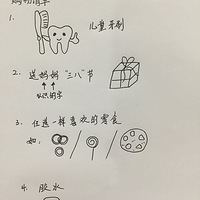 购物清单
1. 儿童牙刷
2. 送妈妈“三八”节
3. 任选一样喜欢的零食
如:
4. 胶水